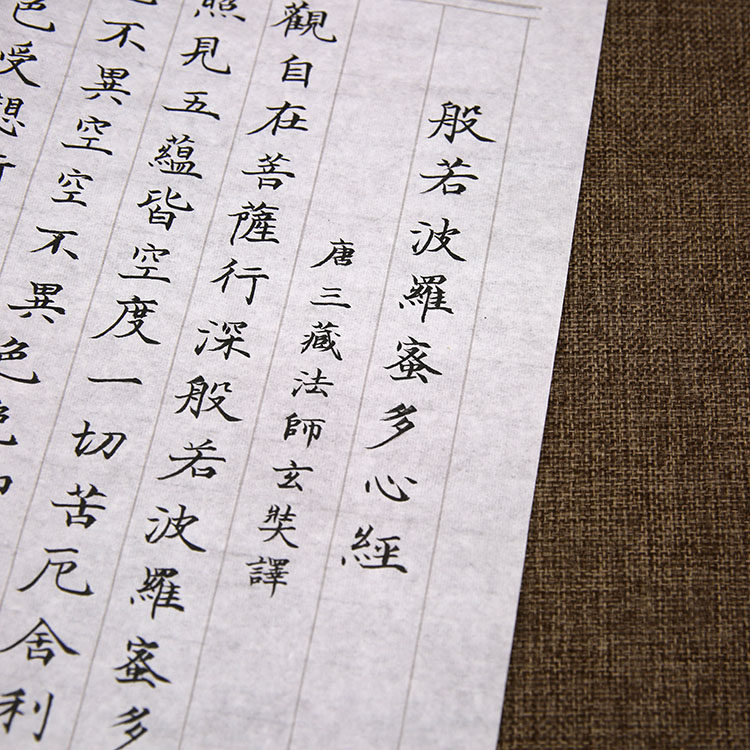 般若波羅蜜多心經
唐三藏法師玄奘譯
觀自在菩薩行深般若波羅蜜多
照見五蘊皆空度一切苦厄舍利
色不異空空不異色色
色受想